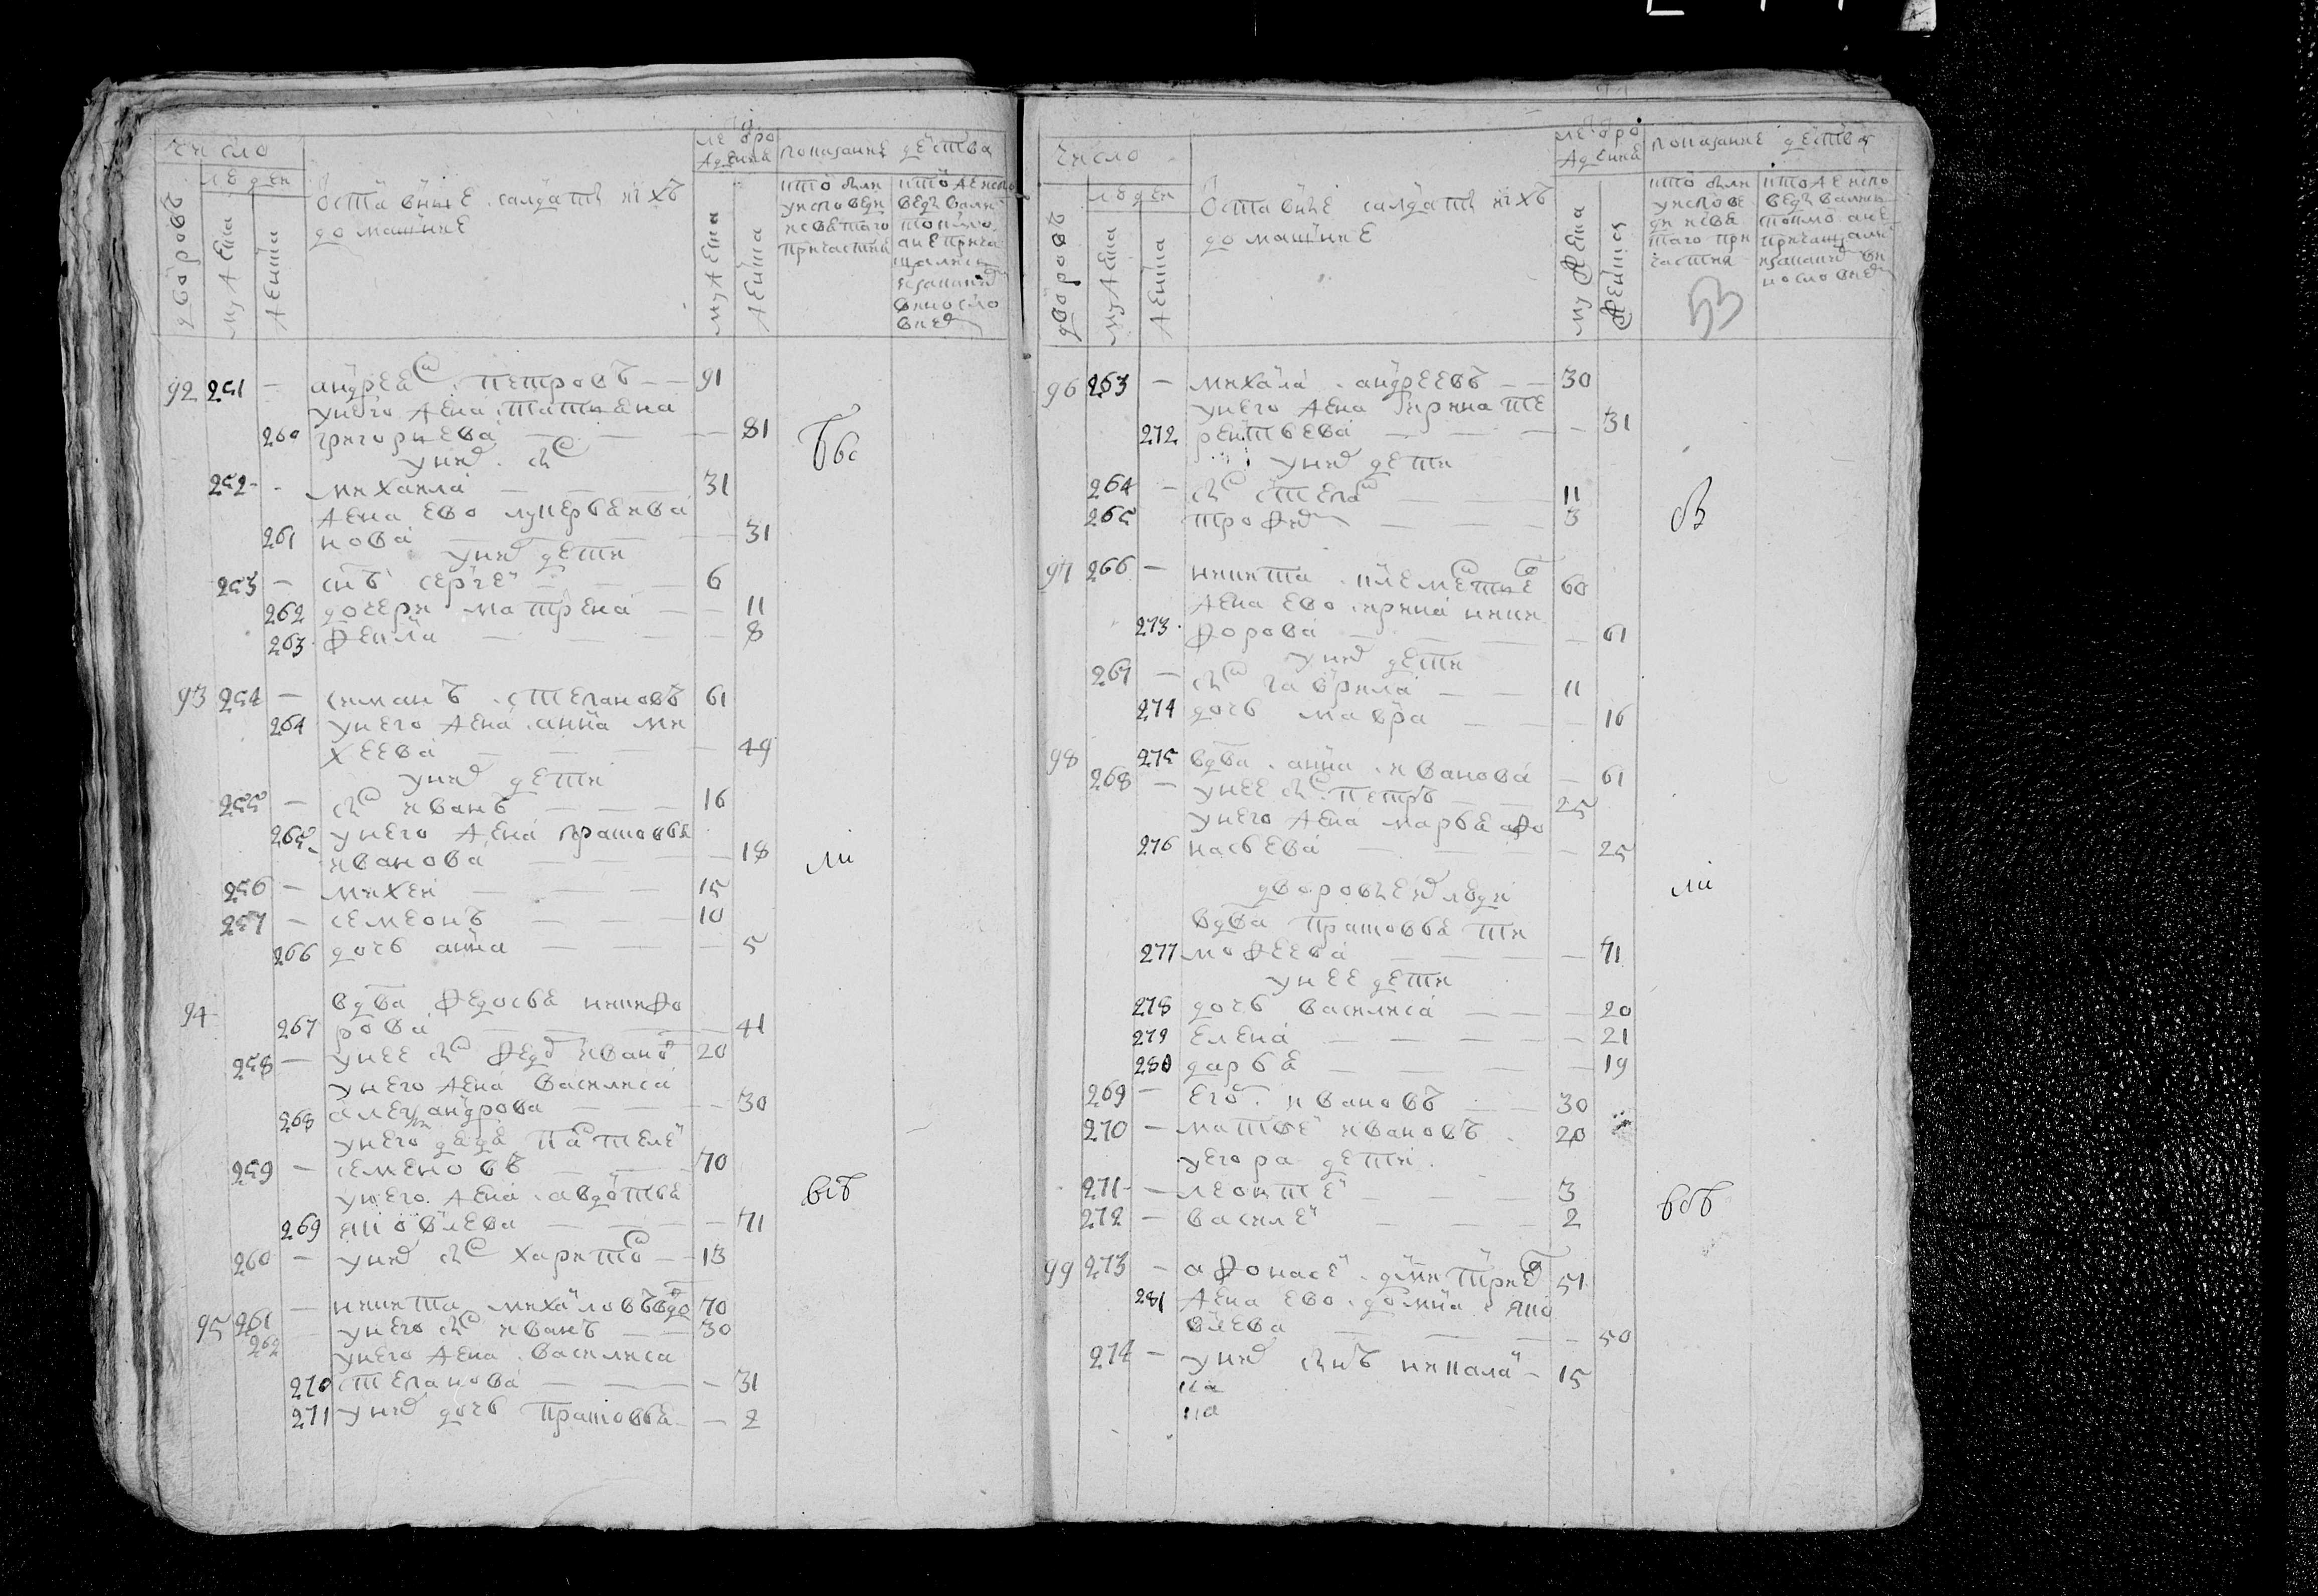 число
людеи
дворовъ
мужеска
женска
Оставные салдаты и ихъ
домашние
лета от ро
ждениа
мужеска
женска
показание деиства
кто были
у исповеди
и святаго
причастиа
кто же испо
ведывались
токмо
а не прича
щались
и за каким
винословием
92 251 — андреан петровъ — — 91
у него жена татиана
260 григориева — — 81
у них сн
252 - михаила — 31
жена ево лукерья ива
261 нова — — 31
у них дети
253 — снъ сергеи — 6
262 дочери матрена — — 11
263 фекла — — 8
93 254 — симанъ степановъ 61
264 у него жена анна ми
хеева — — 49
у них дети
255 — сн иванъ — — 16
265 у него жена прасковья
иванова — — 18
256 — михеи — — 15
257 — семеонъ — — 10
266 дочь анна — — 5
94 вдва федосья никифо
267 рова — — 41
258 — у нее сн федр ивано 20
у него жена василиса
268 александрова — — 30
у него дядя пантелеи
259 — семеновъ — 70
у него жена авдотья
269 яковлева — — 71
260 — у них сн харитон — 13
95 261 — никита михаиловъ вдо 70
262 у него сн иванъ — — 30
у него жена василиса
270 степанова — — 31
271 у них дочь прасковья — 2
Всѣ
ли
бы
число
людеи
дворовъ
мужеска
женска
Оставные салдаты и ихъ
домашние
лета от ро
ждениа
мужеска
женска
показание деиства
кто были
у испове
ди и свя
таго при
частиа
кто же испо
ведывались
токмо а не
причащали
и за каким ви
нословием
53
96 263 — михаила андреевъ — — 30
у него жена ирина те
272 рентьева — — 31
у них дети
264 — сн степан — — 11
265 трофим — — 3
97 266 — никита клементие 60
жена ево ирина ники
273 форова — — 61
у них дети
267 — сн гаврила — — 11
274 дочь мавра — — 16
98 275 вдва анна иванова — 61
268 — у нее сн петръ — — 25
у него жена марья афо
276 насьева — — 25
дворовых людеи
вдва прасковья ти
277 мофеева — — 71
у нее дети
278 дочь василиса — — 20
279 елена — — 21
280 дарья — — 19
269 — егор ивановъ — — 30
270 — матвеи ивановъ 20
у егора дети
271 — леонтеи — 3
272 — василеи — — 2
99 273 — афонасеи дмитриев 51
281 жена ево домна яко
влева — — 50
274 — у них снъ николаи — 15
ли